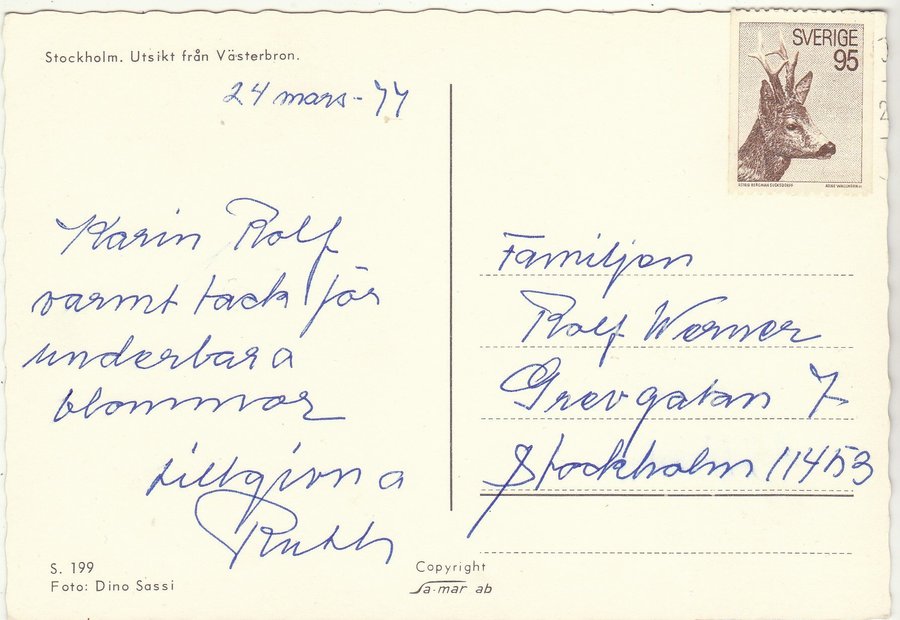 Stockholm. Utsikt från Västerbron.
24 mars - 77
Karin Rolf
varmt tack för
underbara
blommor
tillgivna
Ruth
S. 199
Foto: Dino Sassi
Copyright
Sa-mar ab
SVERIGE
95
Familjen
Rolf Werner
Grevgatan 7
Stockholm 11453